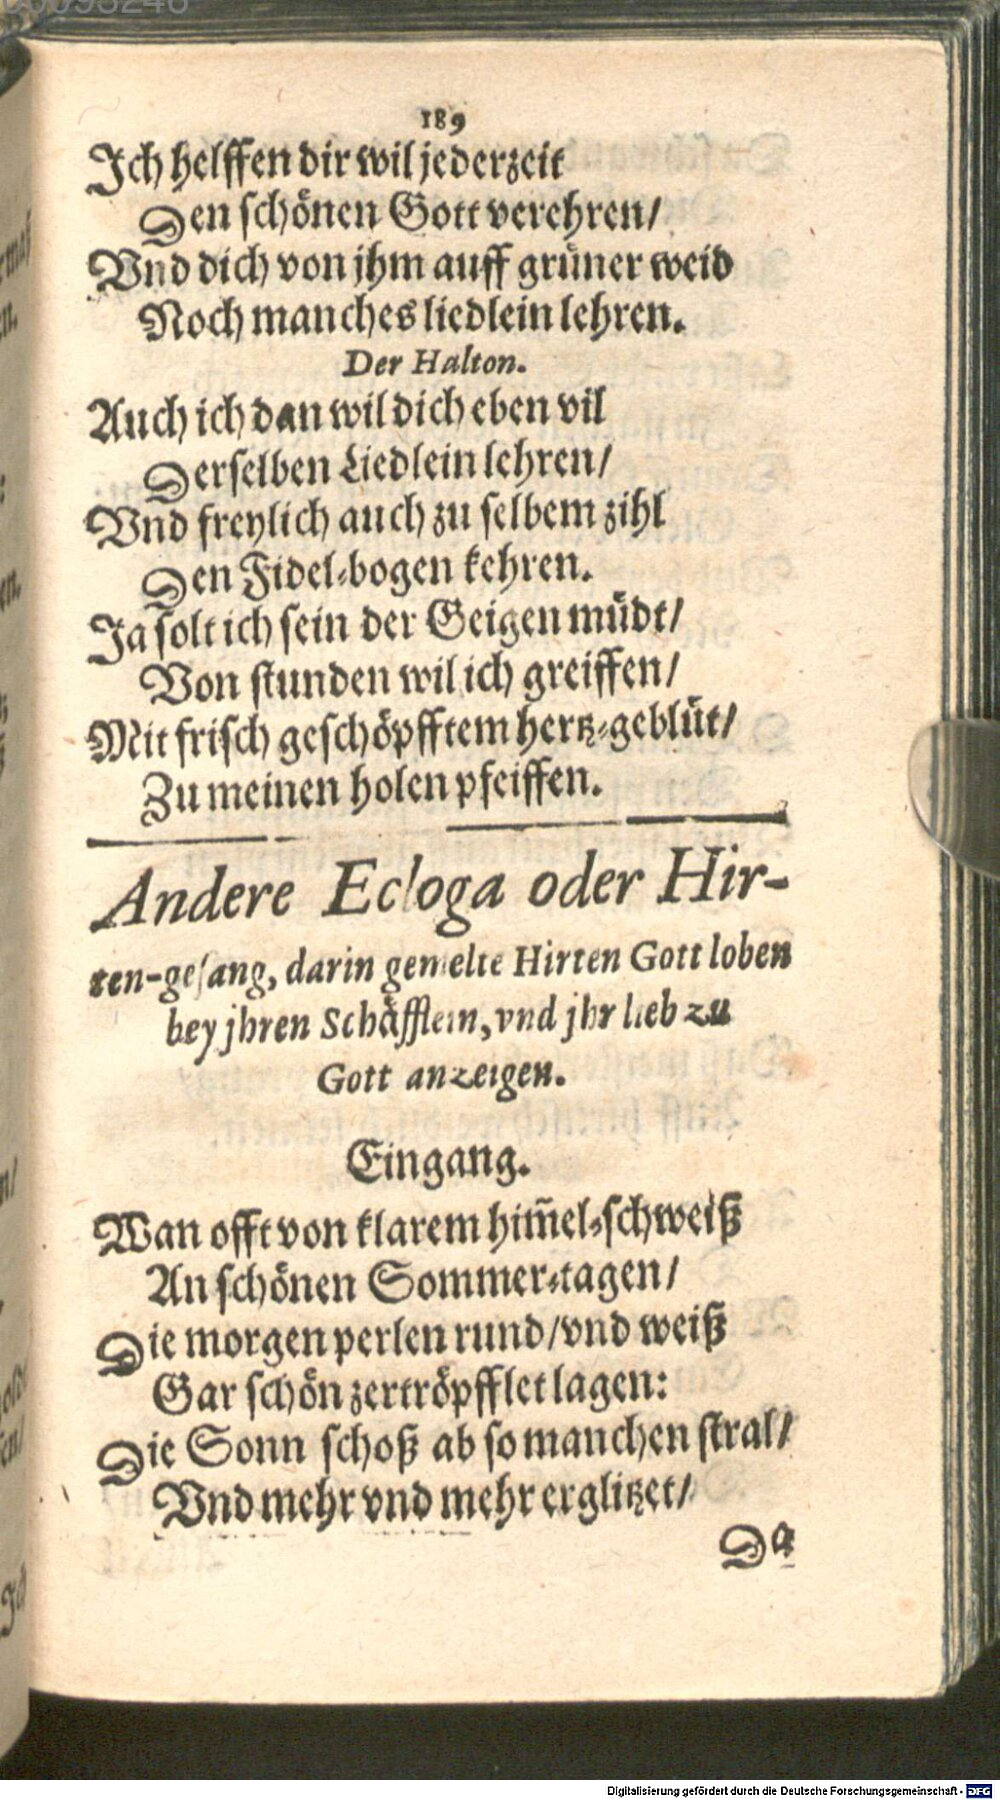 00095246
189
Ich helffen dir wil jederzeit
Den schönen Gott verehren/
Vnd dich von jhm auff grüner weid
Noch manches liedlein lehren.
Der Halton.
Auch ich dan wil dich eben vil
Derselben Liedlein lehren/
Vnd freylich auch zu selbem zihl
Den Fidel-bogen kehren.
Ja solt ich sein der Geigen müdt/
Von stunden wil ich greiffen/
Mit frisch geschöpfftem hertz-geblüt/
Zu meinen holen pfeiffen.
Andere Ecloga oder Hir-
ten-gesang, darin gemelte Hirten Gott loben
bey jhren Schäfflein, vnd jhr lieb zu
Gott anzeigen.
Eingang.
Wan offt von klarem him̃el-schweiß
An schönen Sommer-tagen/
Die morgen perlen rund/vnd weiß
Gar schön zertröpfflet lagen:
Die Sonn schoß ab so manchen stral/
Vnd mehr vnd mehr erglitzet/
Da
Digitalisierung gefördert durch die Deutsche Forschungsgemeinschaft - DFG